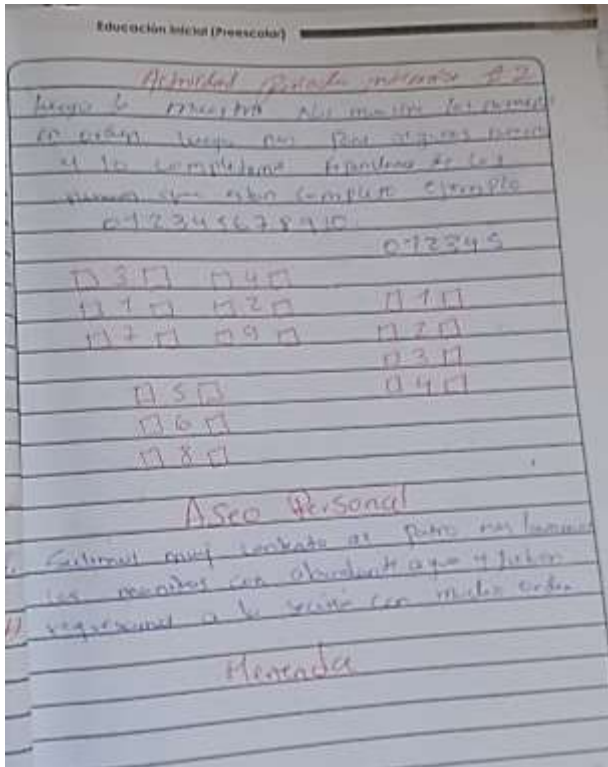 Educación Inicial (Preescolar)
Actividad # 2
luego la maestra nos muestra los
en orden luego nos pone algunos
y lo completamos de los
que estan completo ejemplo
0 1 2 3 4 5 6 7 8 9 10
0 1 2 3 4 5
□ 3 □ □ 4 □
□ 1 □ □ 2 □ □ 1 □
□ 7 □ □ 9 □ □ 2 □
□ 3 □
□ 5 □ □ 4 □
□ 6 □
□ 8 □
Aseo Personal
Salimos muy al patio nos
las manitos con abundante agua y jabon
regresamos a la con mucho orden
Merienda